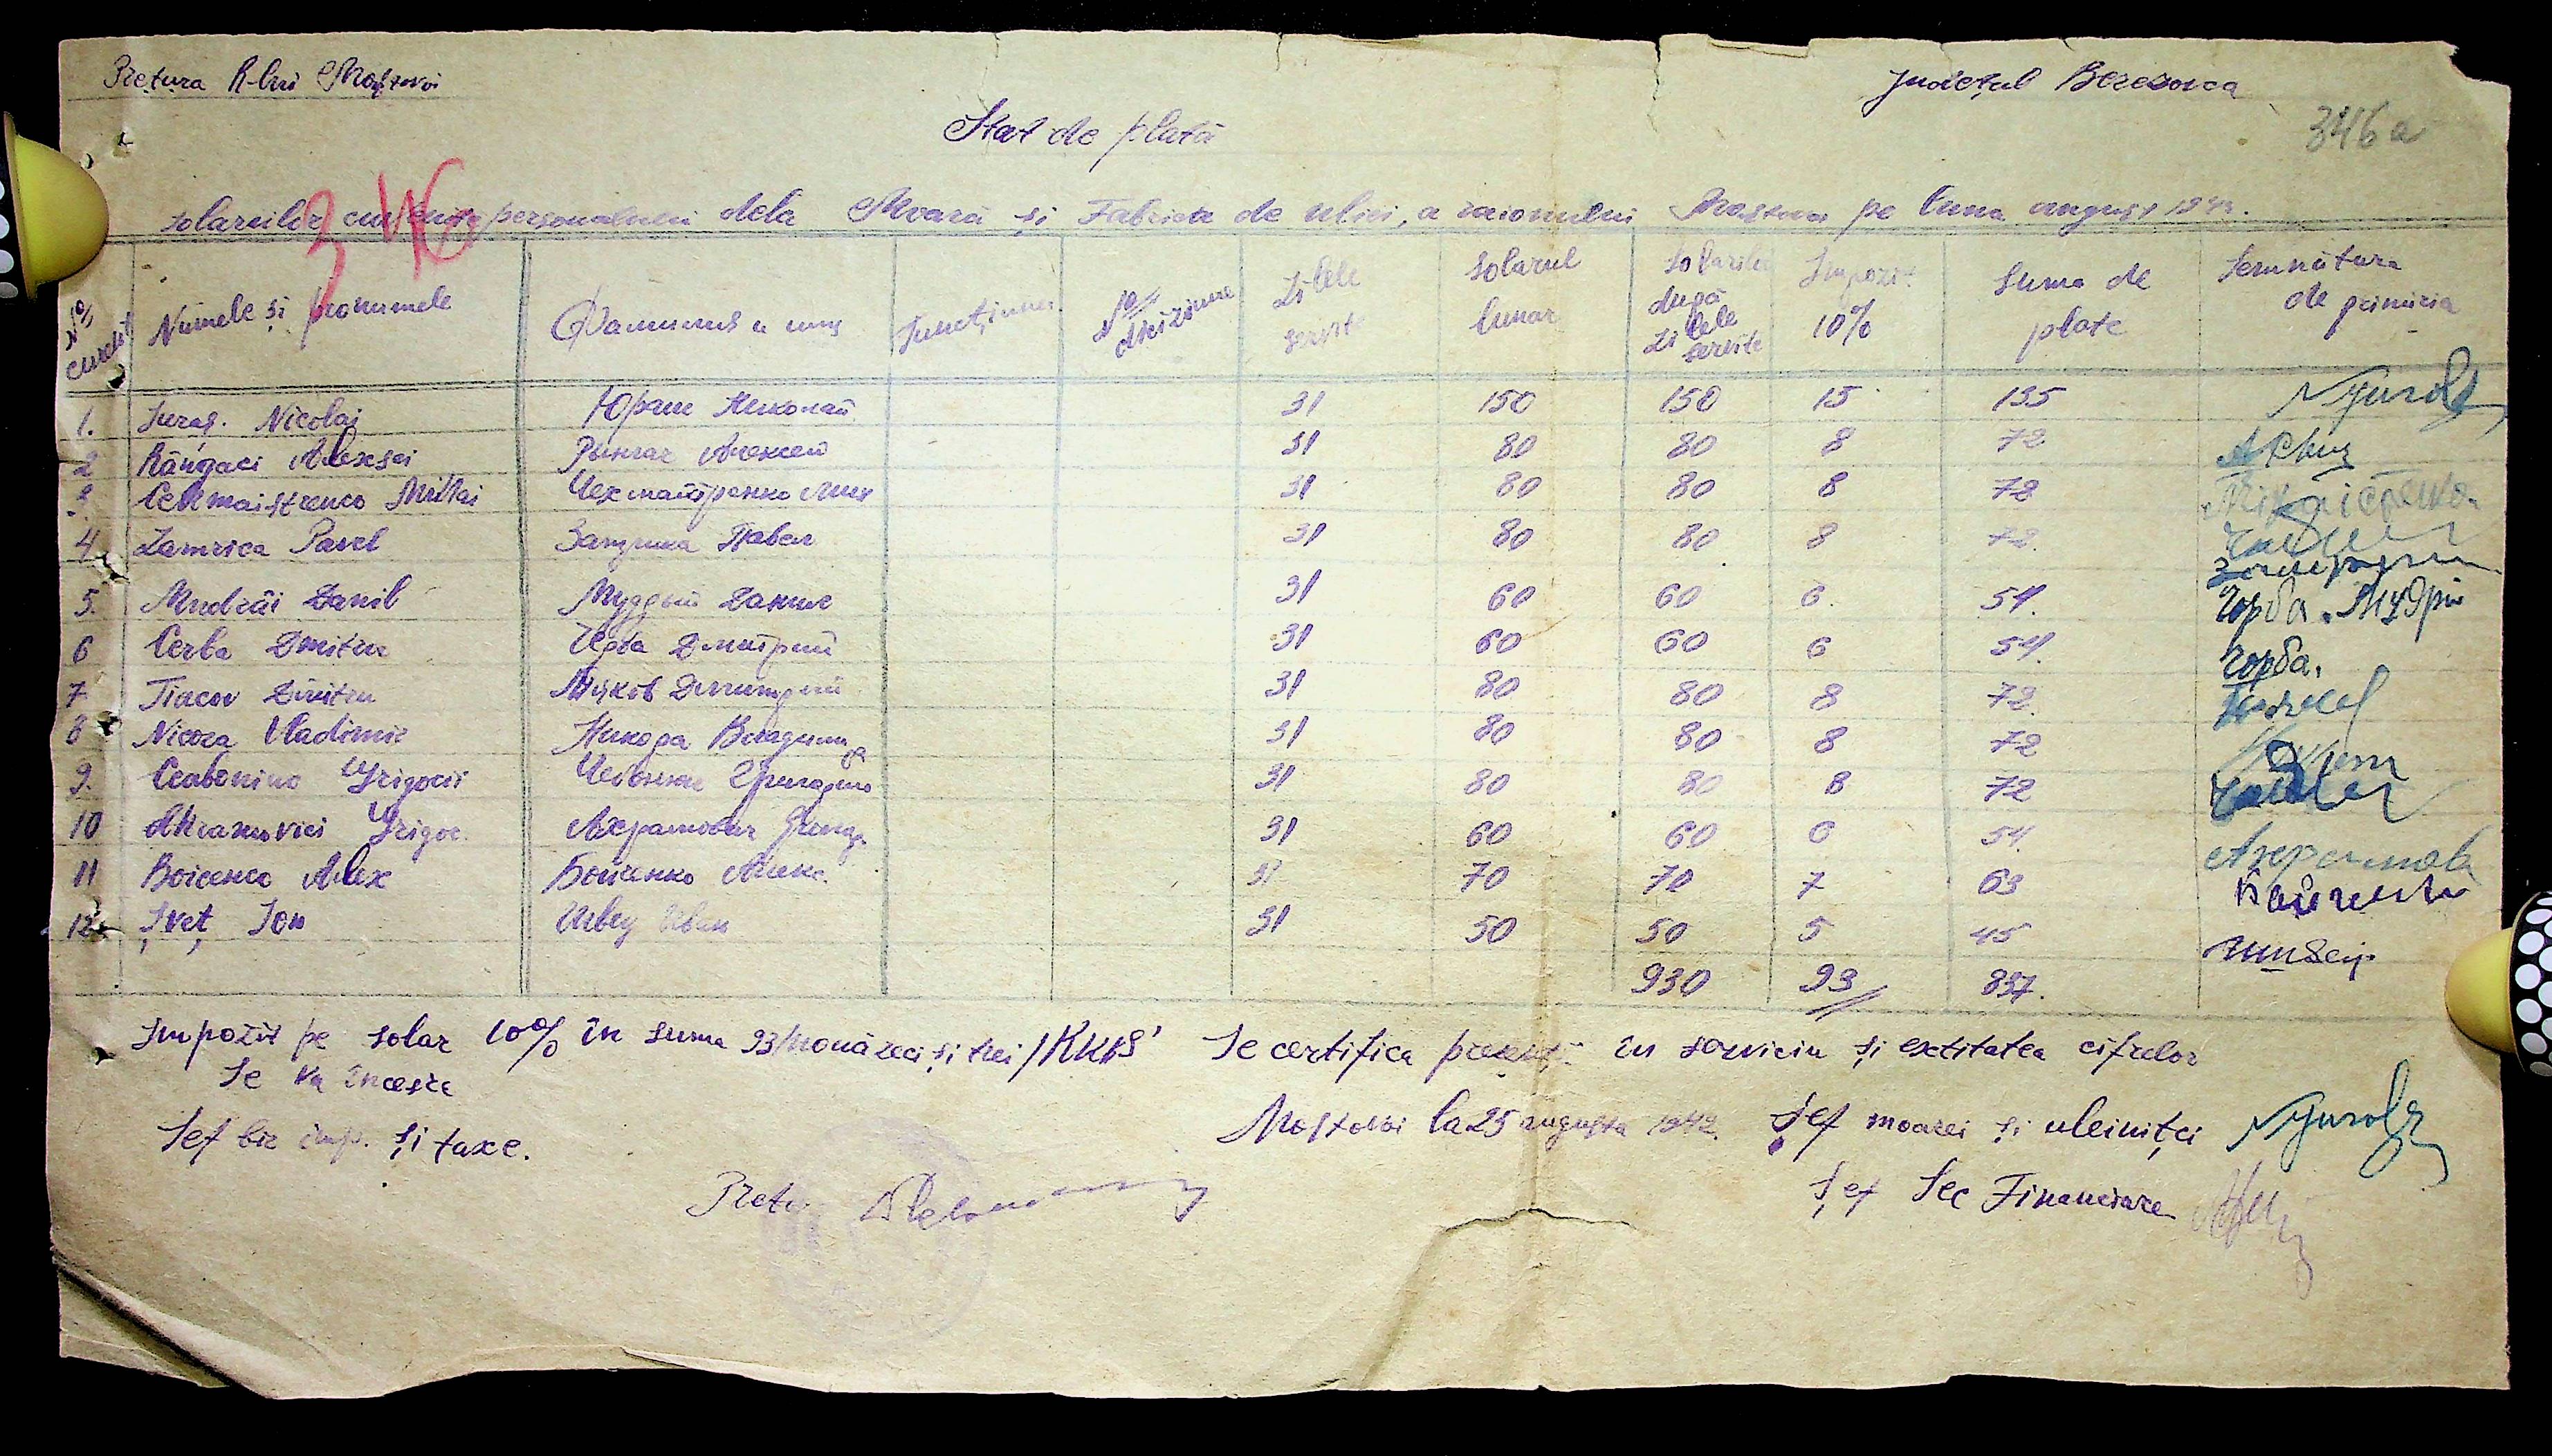 Pretura R-lui Mostovoi
Județul Berezovca
346 a
Stat de plată
346
solariilor cuvenite personalului dela Moară și Fabrica de ulei, a raionului Mostovoi pe luna august 194
№ curent Numele și pronumele Фамилия и имя Funcțiunea № diciziune Zilele servite Solarul lunar Solariile după zilele servite Impozit 10% Suma de plate Semnătura de primiria
1. Juraș. Nicolai Юраш Николай 31 150 150 15 135
2 Rângaci Alexsei Рынгач Алексей 31 80 80 8 72
3 Cehmaistrenco Mihai Чехмайстренко Мих 31 80 80 8 72
4 Zamrica Pavel Павел 31 80 80 8 72.
5. Mudrâi Danil Мудрый Данил 31 60 60 6. 54. Чорба. Мудрiй
6 Cerba Dmitru Черба Дмитрий 31 60 60 6 54. Чорба.
7 Tiacov Dimitru Дмитрий 31 80 80 8 72
8 Nicora Vladimir Никора Владимир 31 80 80 8 72
9. Ceaboniuc Grigorii Григорий 31 80 80 8 72
10 Ahramovici Grigor. Ахрамович Григор. 31 60 60 6 54.
11 Boicenco Alex Бойченко Алекс. 31 70 70 7 63
12. Șveț Ion Швец Иван 31 50 50 5 45
930 93 837.
Impozit pe solar 10% în suma 93/nouă zeci și trei/RKKS Se certifica în serviciu și exctitatea cifrelor
Se va încasa
Mostovoi la 25 augusta 1942. Șef moarei și uleiniței
Șef bir imp. și taxe.
Pretor
Șef Sec Financiare